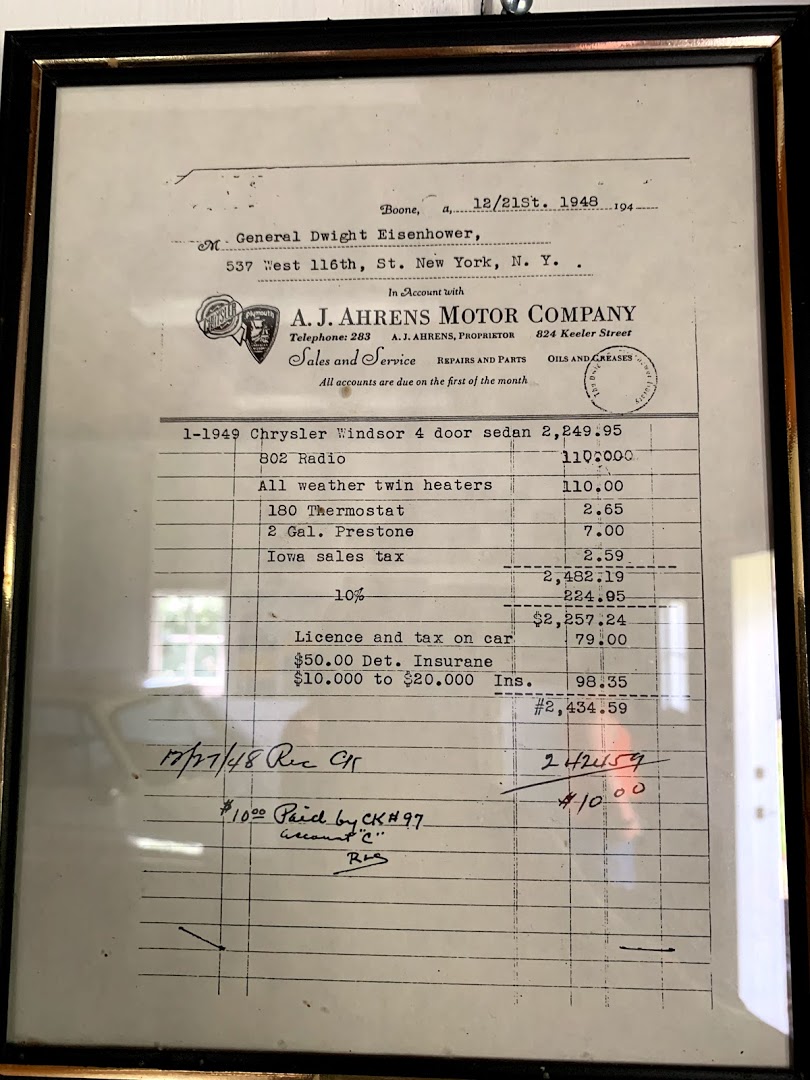 Boone, a, 12/21St. 1948 194
M General Dwight Eisenhower,
537 West 116th, St. New York, N. Y. .
In Account with
CHRYSLER Plymouth
A. J. AHRENS MOTOR COMPANY
Telephone: 283 A. J. AHRENS, PROPRIETOR 824 Keeler Street
Sales and Service REPAIRS AND PARTS OILS AND GREASES
All accounts are due on the first of the month
1-1949 Chrysler Windsor 4 door sedan 2,249.95
802 Radio
All weather twin heaters 110.00
180 Thermostat 2.65
2 Gal. Prestone 7.00
Iowa sales tax 2.59
2,482.19
10% 224.95
$2,257.24
Licence and tax on car 79.00
$50.00 Det. Insurane
$10.000 to $20.000 Ins. 98.35
#2,434.59
12/27/48 Rec CK 242459
#10 00
$10 00 Paid by CK # 97
account "C"